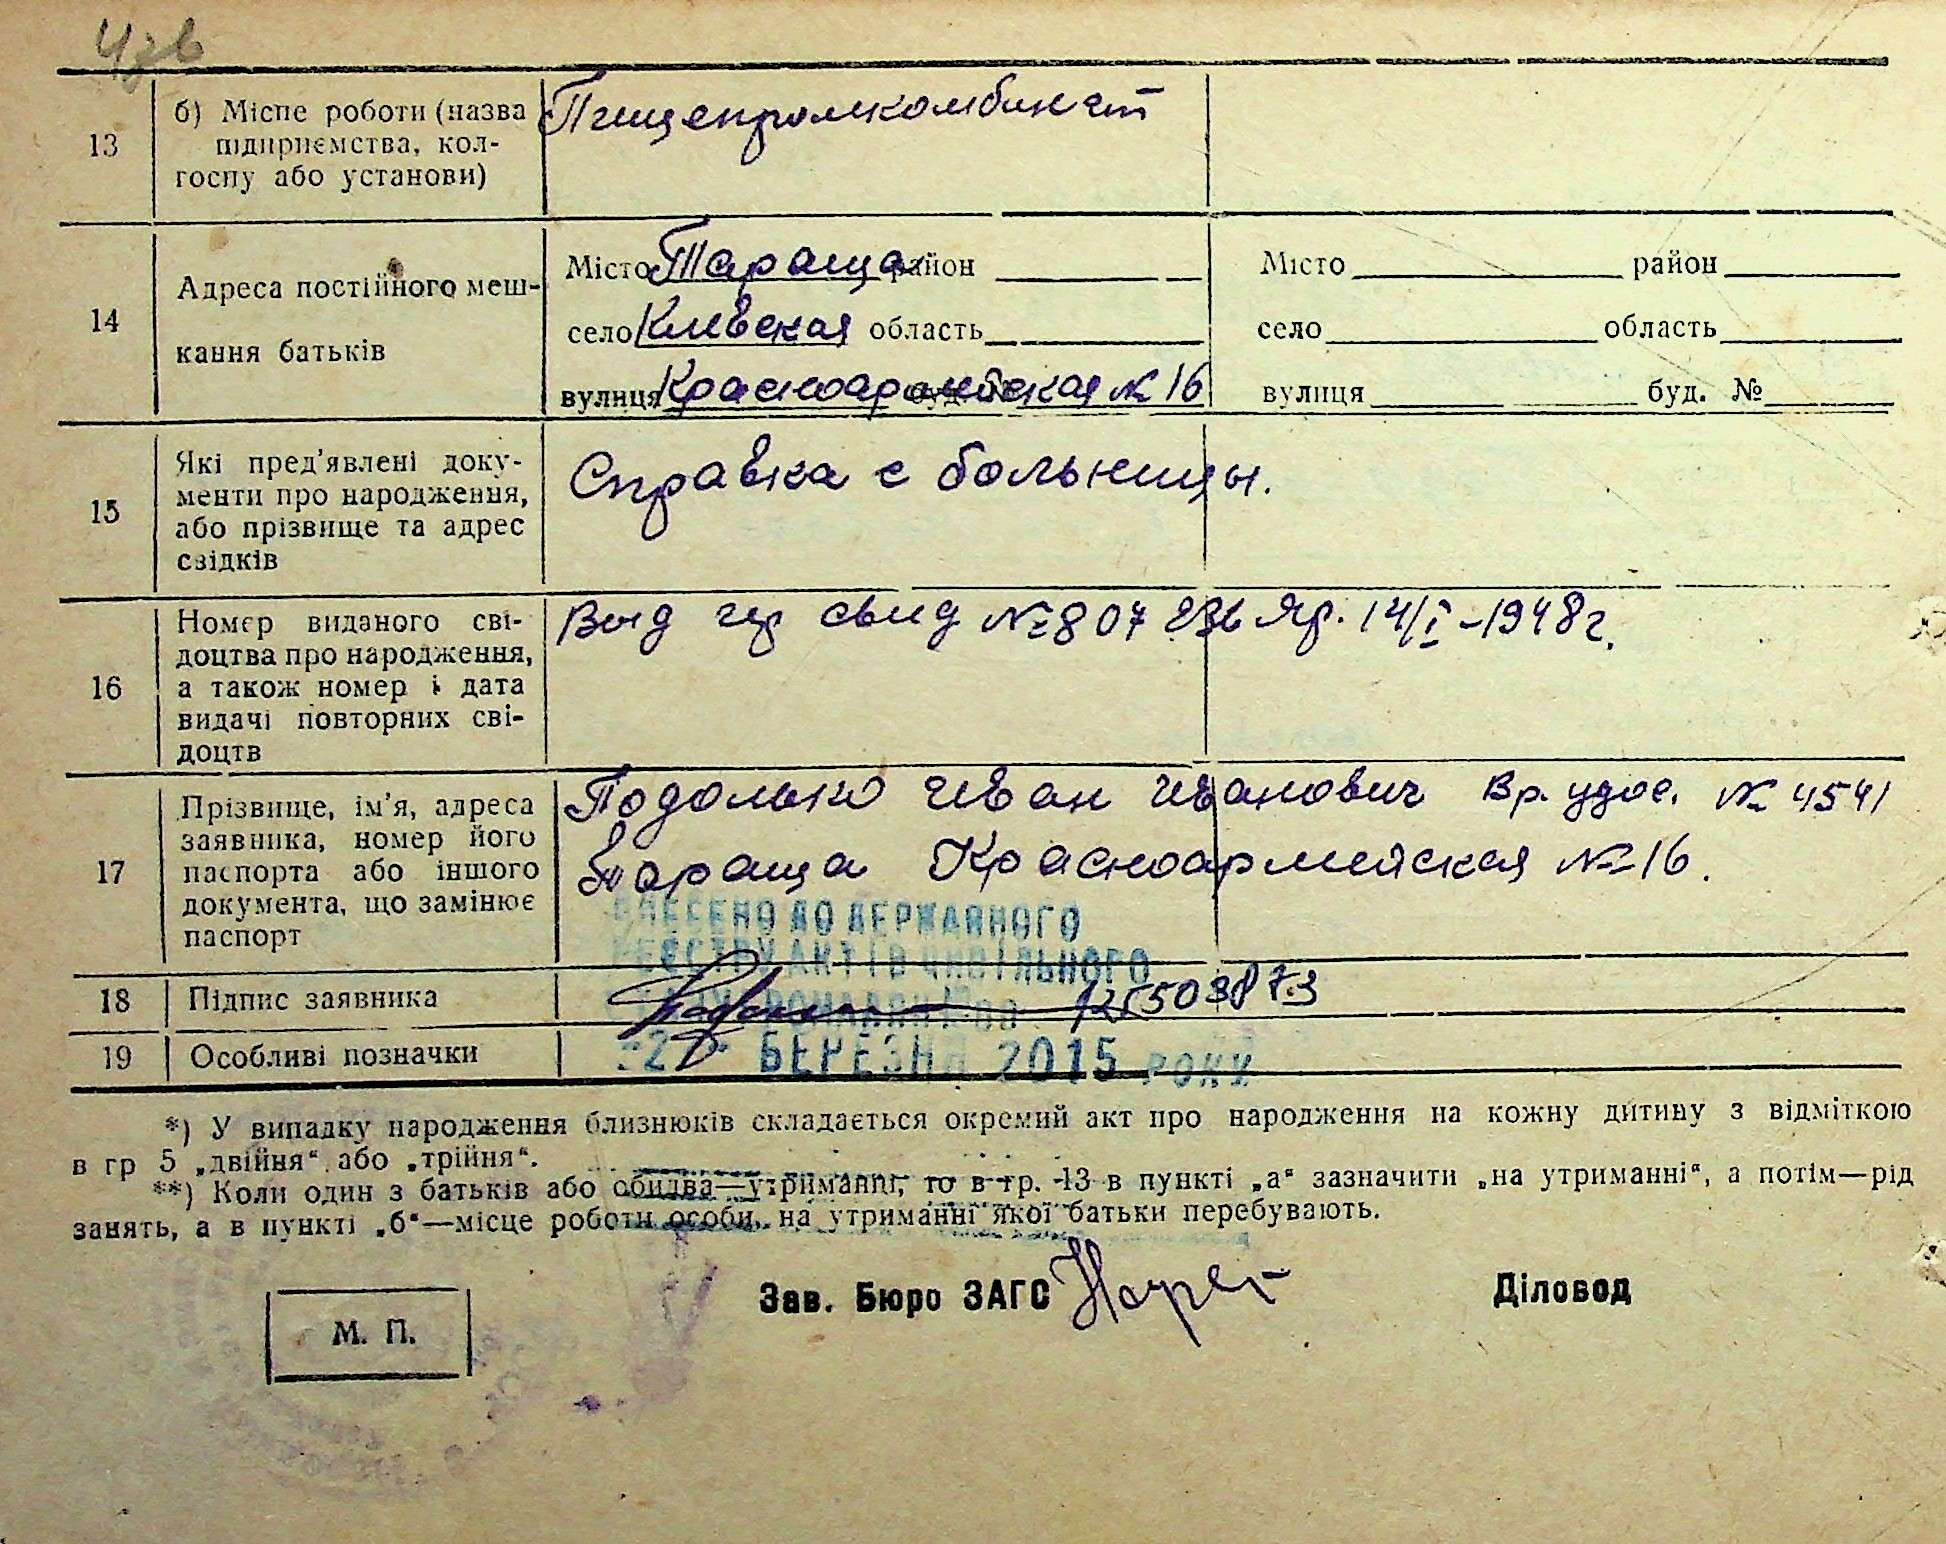 13
б) Місце роботи (назва підприємства, колгоспу або установи)
Пищепромкомбинат
14
Адреса постійного мешкання батьків
Місто Тараща район
село Киевская область
вулиця Красноармейская № 16
Місто район
село область
вулиця буд. №
15
Які пред'явлені документи про народження, або прізвище та адрес свідків
Справка с больницы.
16
Номер виданого свідоцтва про народження, а також номер і дата видачі повторних свідоцтв
Выд свид № 807 14/I-1948 г.
17
Прізвище, ім'я, адреса заявника, номер його паспорта або іншого документа, що замінює паспорт
Подолько Иван Иванович Вр. удос. № 4541
Тараща Красноармейская № 16.
ВНЕСЕНО ДО ДЕРЖАВНОГО
РЕЄСТРУ АКТІВ ЦИВІЛЬНОГО
СТАНУ ГРОМАДЯН
18
Підпис заявника
19
Особливі позначки
БЕРЕЗНЯ 2015 РОКУ
*) У випадку народження близнюків складається окремий акт про народження на кожну дитину з відміткою
в гр 5 „двійня“ або „трійня“.
**) Коли один з батьків або обидва—утриманці, то в гр. 13 в пункті „а“ зазначити „на утриманні“, а потім—рід
занять, а в пункті „б“—місце роботи особи, на утриманні якої батьки перебувають.
Зав. Бюро ЗАГС
Діловод
М. П.